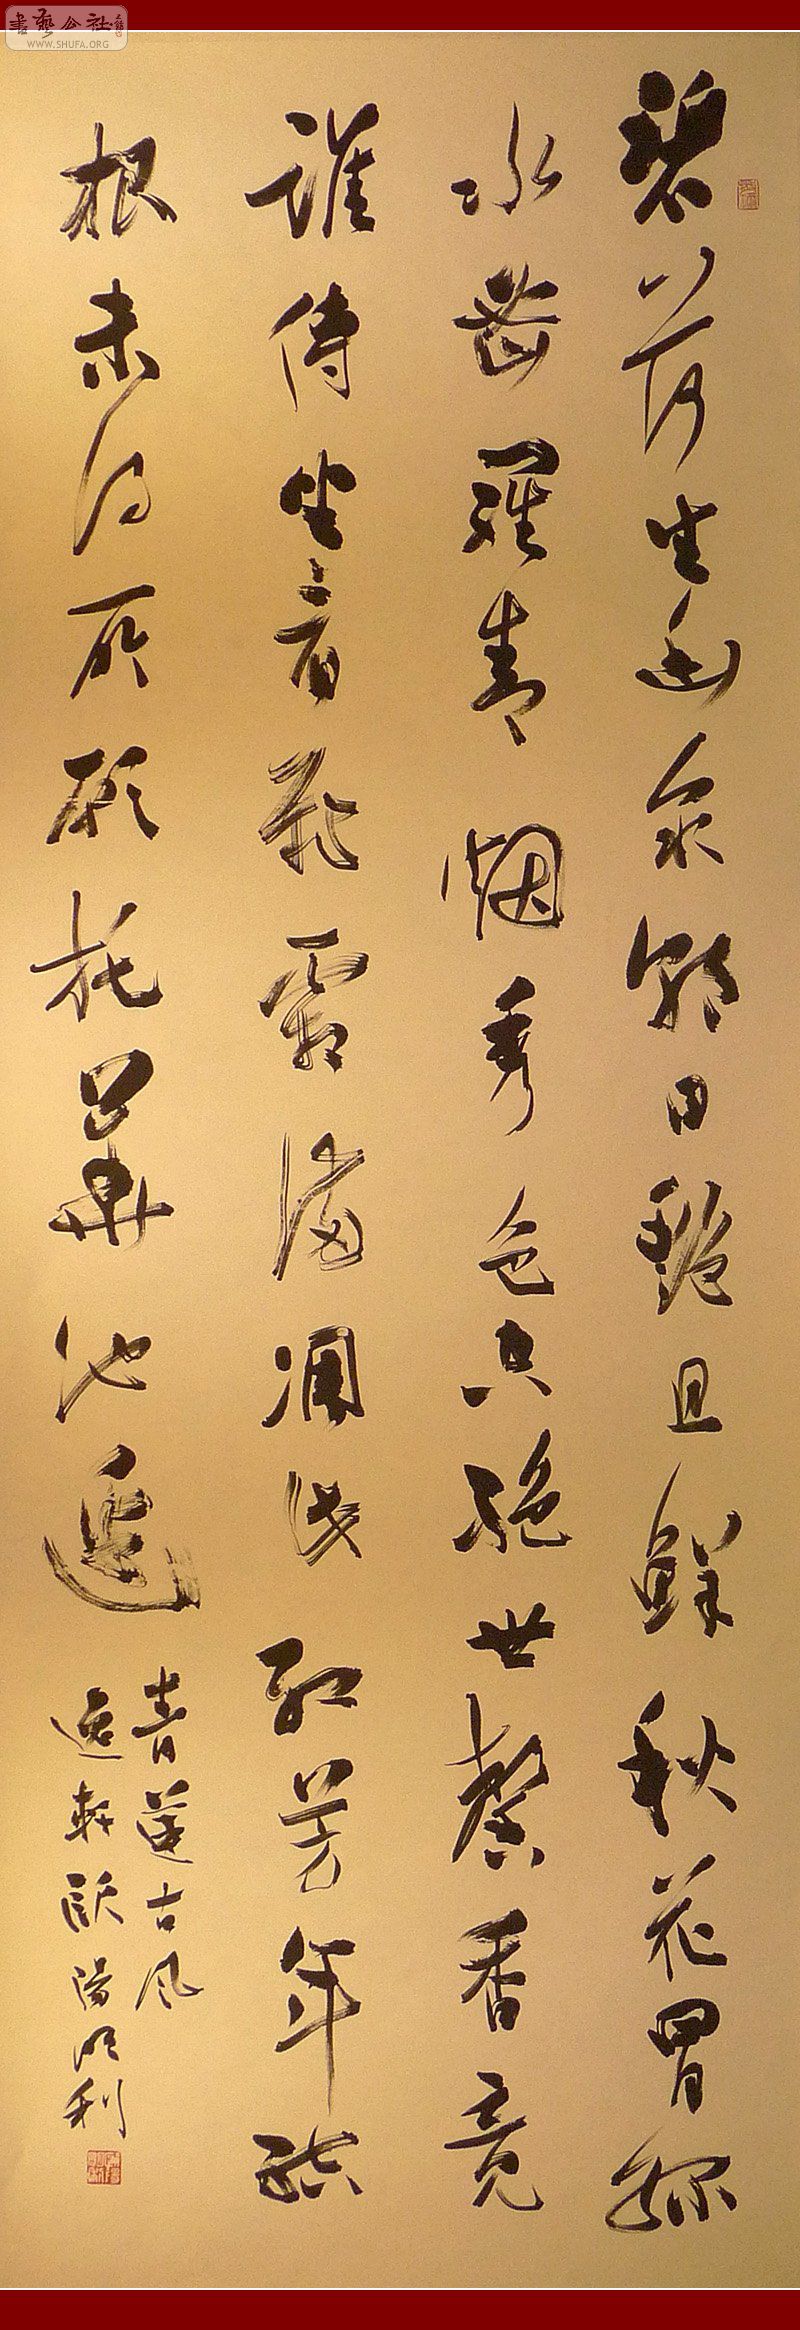 書藝公社
WWW.SHUFA.ORG
碧荷生幽泉朝日艷且鮮秋花冒綠
水密羅青烟秀色空絕世馨香竟
誰傳坐看飛霜滿凋此紅芳年結
根未得所願托華池邊
青蓮古風
逸軒歐陽利